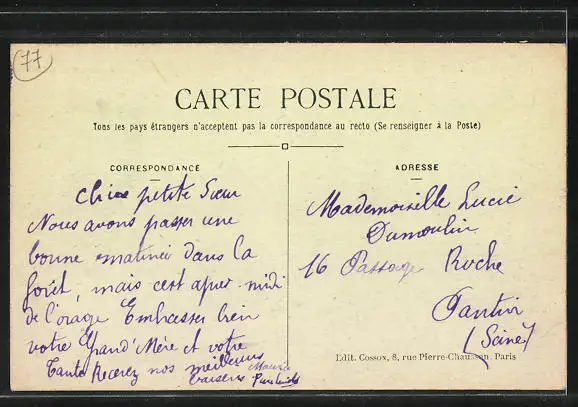 77
CARTE POSTALE
Tous les pays étrangers n'acceptent pas la correspondance au recto (Se renseigner à la Poste)
CORRESPONDANCE
petite Sœur
Nous avons passer une
bonne matinée dans la
forêt, mais cest apres-midi
de l'orage Embrasser bien
votre Grand'Mère et votre
Tante Recevez nos meilleurs
baisers
ADRESSE
Mademoiselle Lucie
Dumoulin
16 Passage Roche
Pantin
(Seine)
Edit. Cossox, 8, rue Pierre-Chausson, Paris